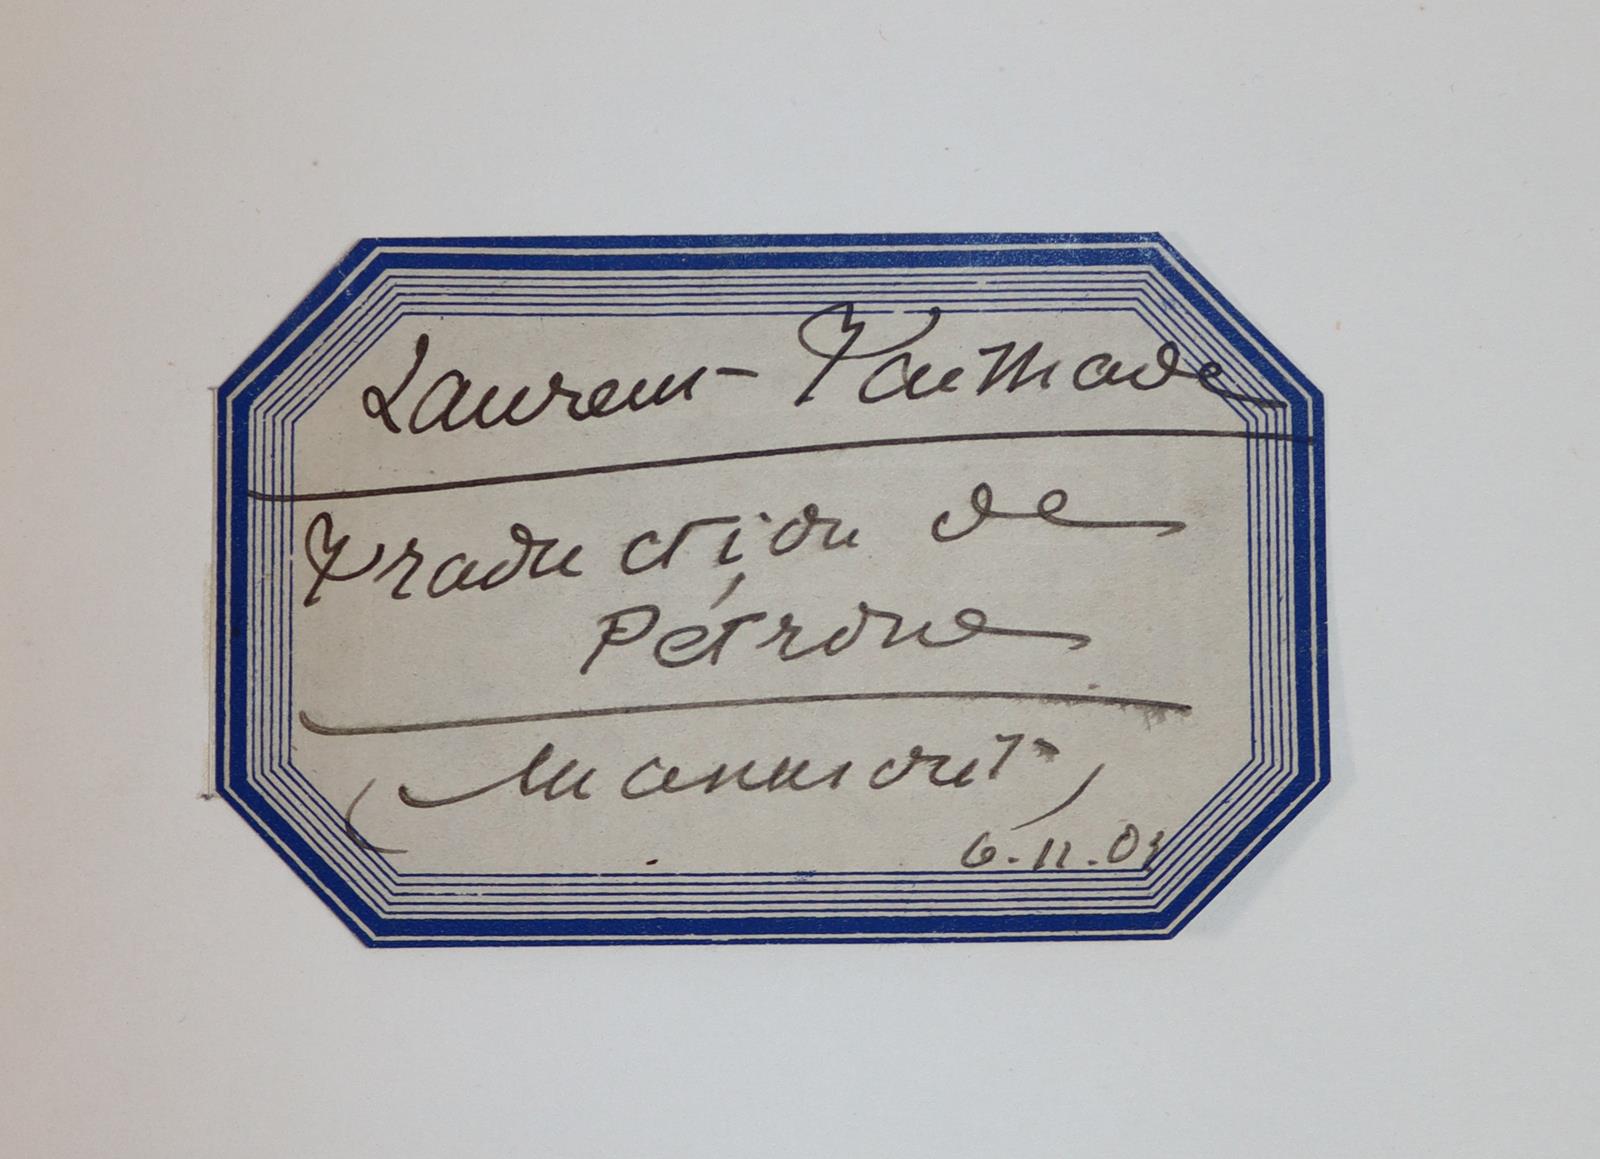 Laurent Tailhade
Traduction de
Pétrone
(Manuscrit)
6.11.01